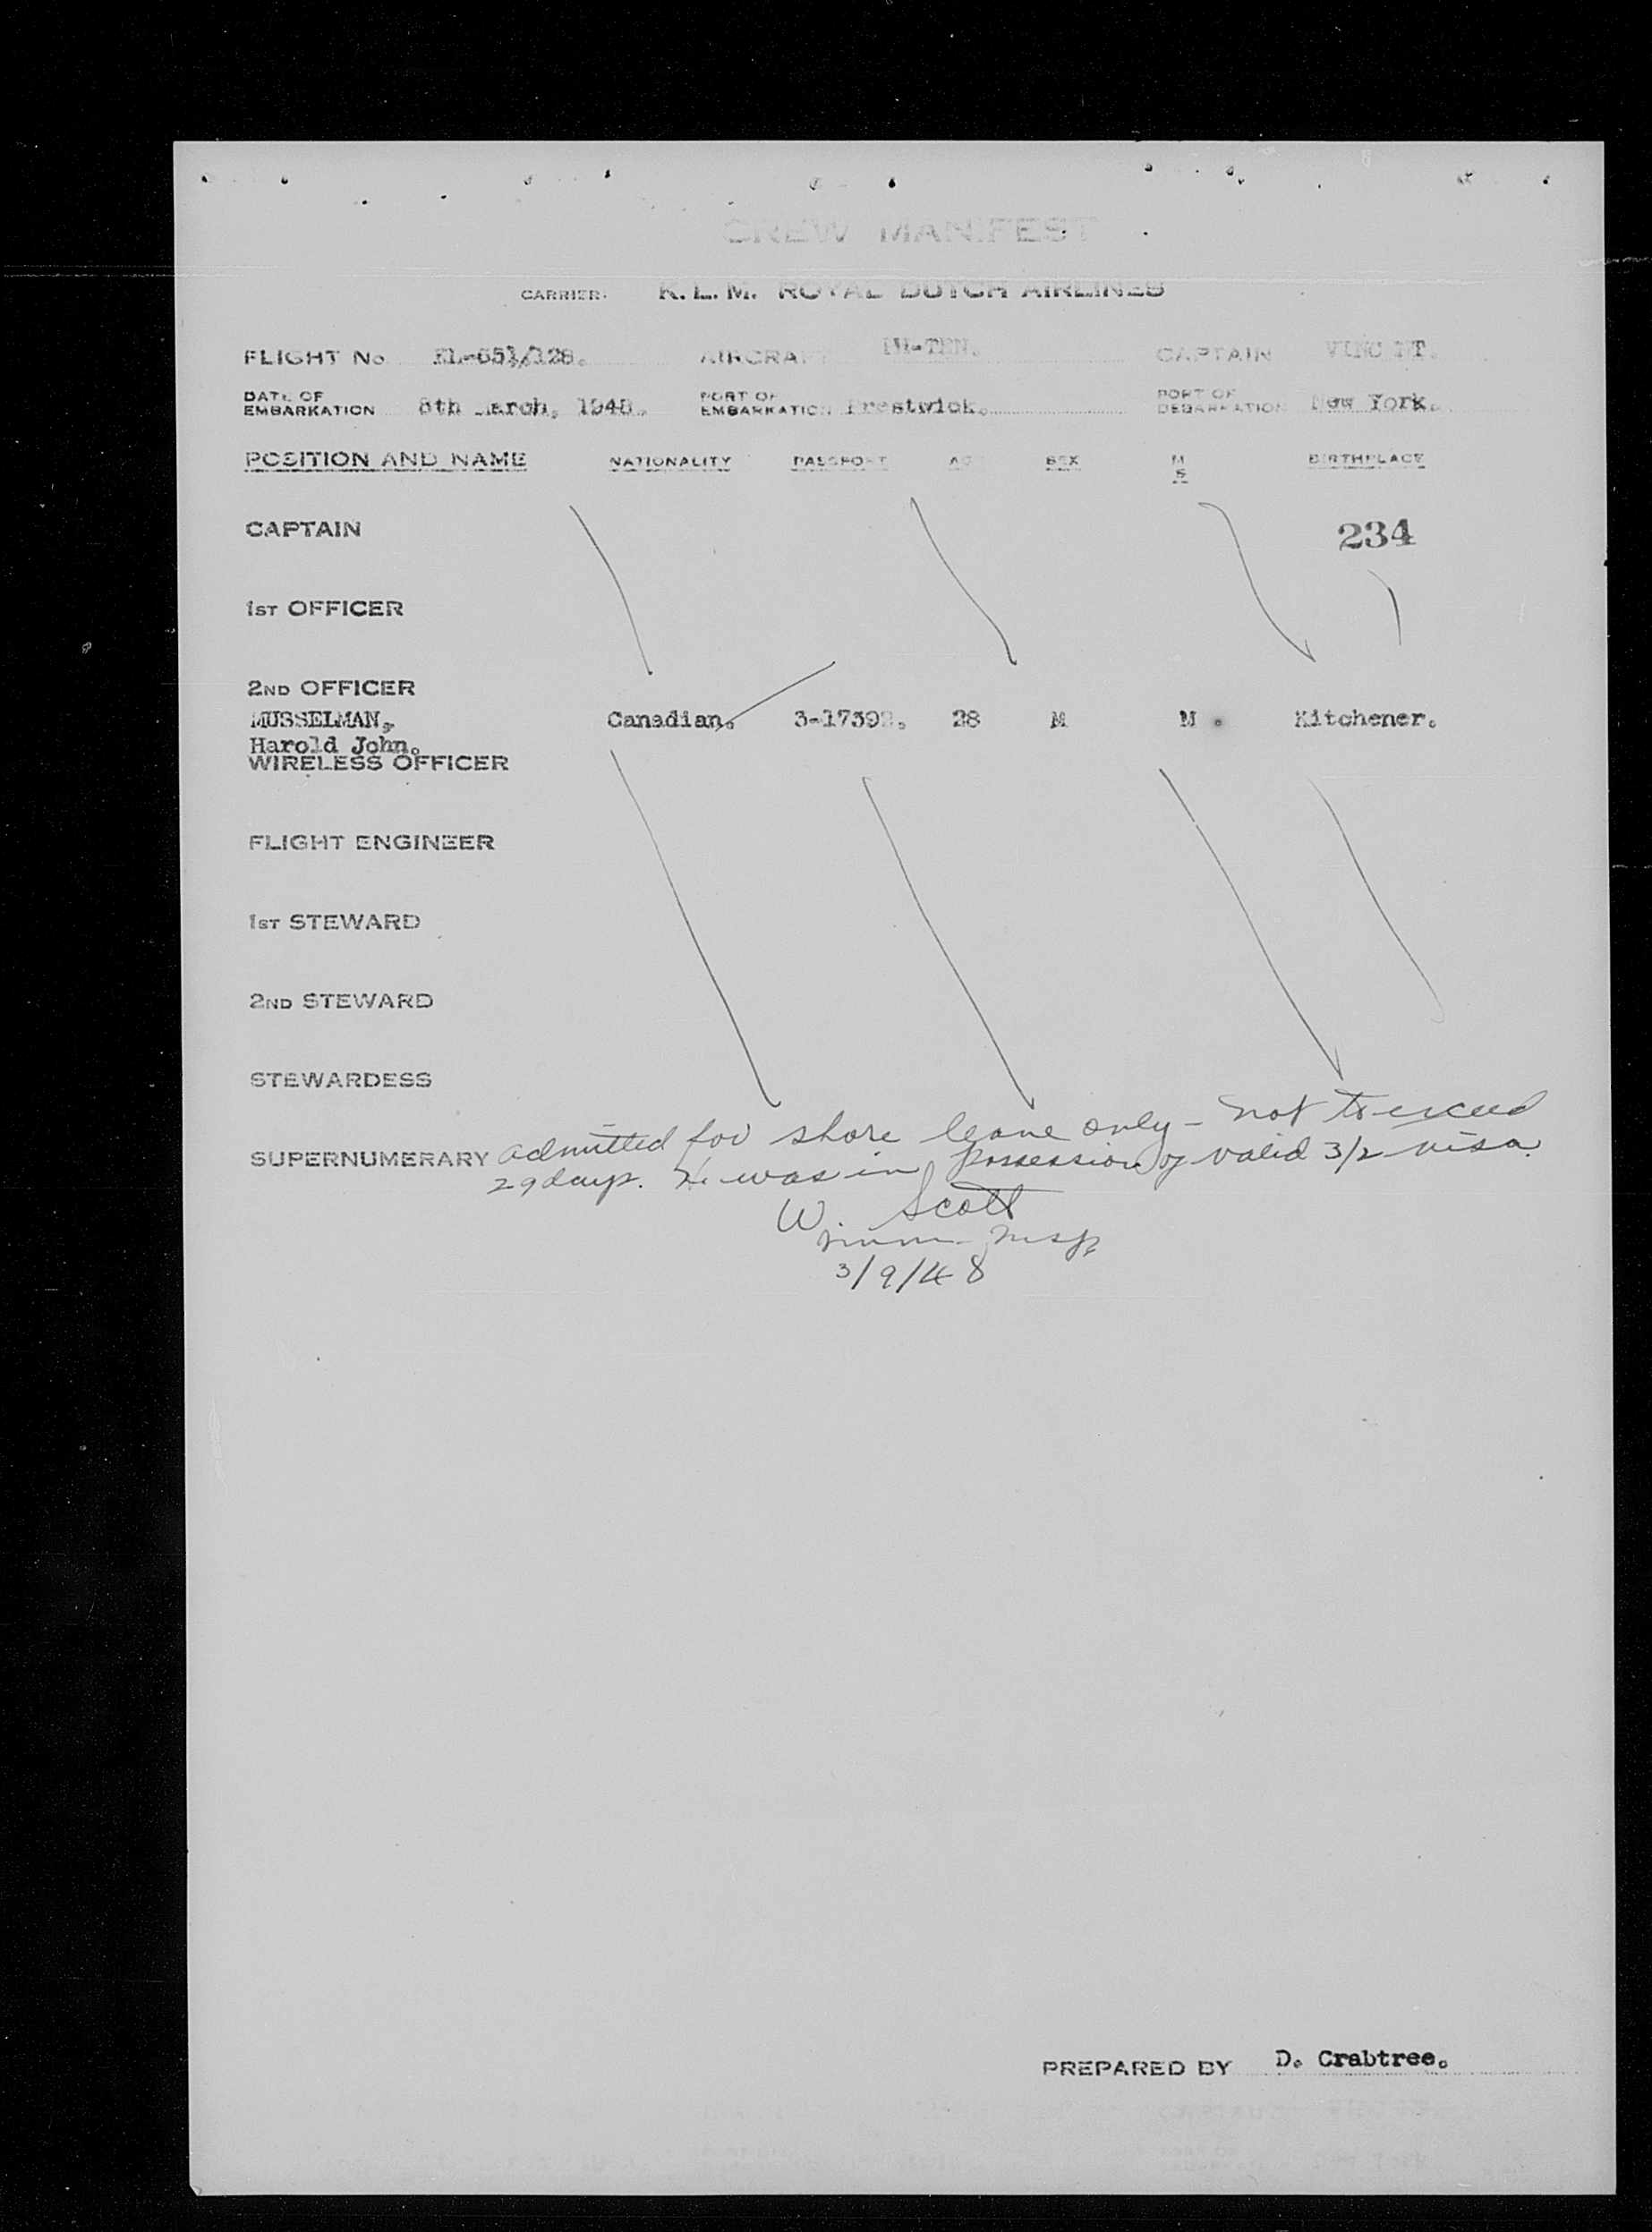 CREW MANIFEST
CARRIER: K. L. M. ROYAL DUTCH AIRLINES
FLIGHT No. KL-651/128. AIRCRAFT PH-TEN. CAPTAIN VINCENT.
DATE OF EMBARKATION 8th March, 1948. PORT OF EMBARKATION Prestwick. PORT OF DEBARKATION New York.
POSITION AND NAME NATIONALITY PASSPORT AGE SEX M S BIRTHPLACE
CAPTAIN 234
1ST OFFICER
2ND OFFICER
MUSSELMAN, Canadian. 3-17392. 28 M M. Kitchener.
Harold John.
WIRELESS OFFICER
FLIGHT ENGINEER
1ST STEWARD
2ND STEWARD
STEWARDESS
SUPERNUMERARY admitted for shore leave only - not to exceed
29 days. He was in possession of valid 3/2 visa.
W. Scott
Imm. Insp
3/9/48
PREPARED BY D. Crabtree.